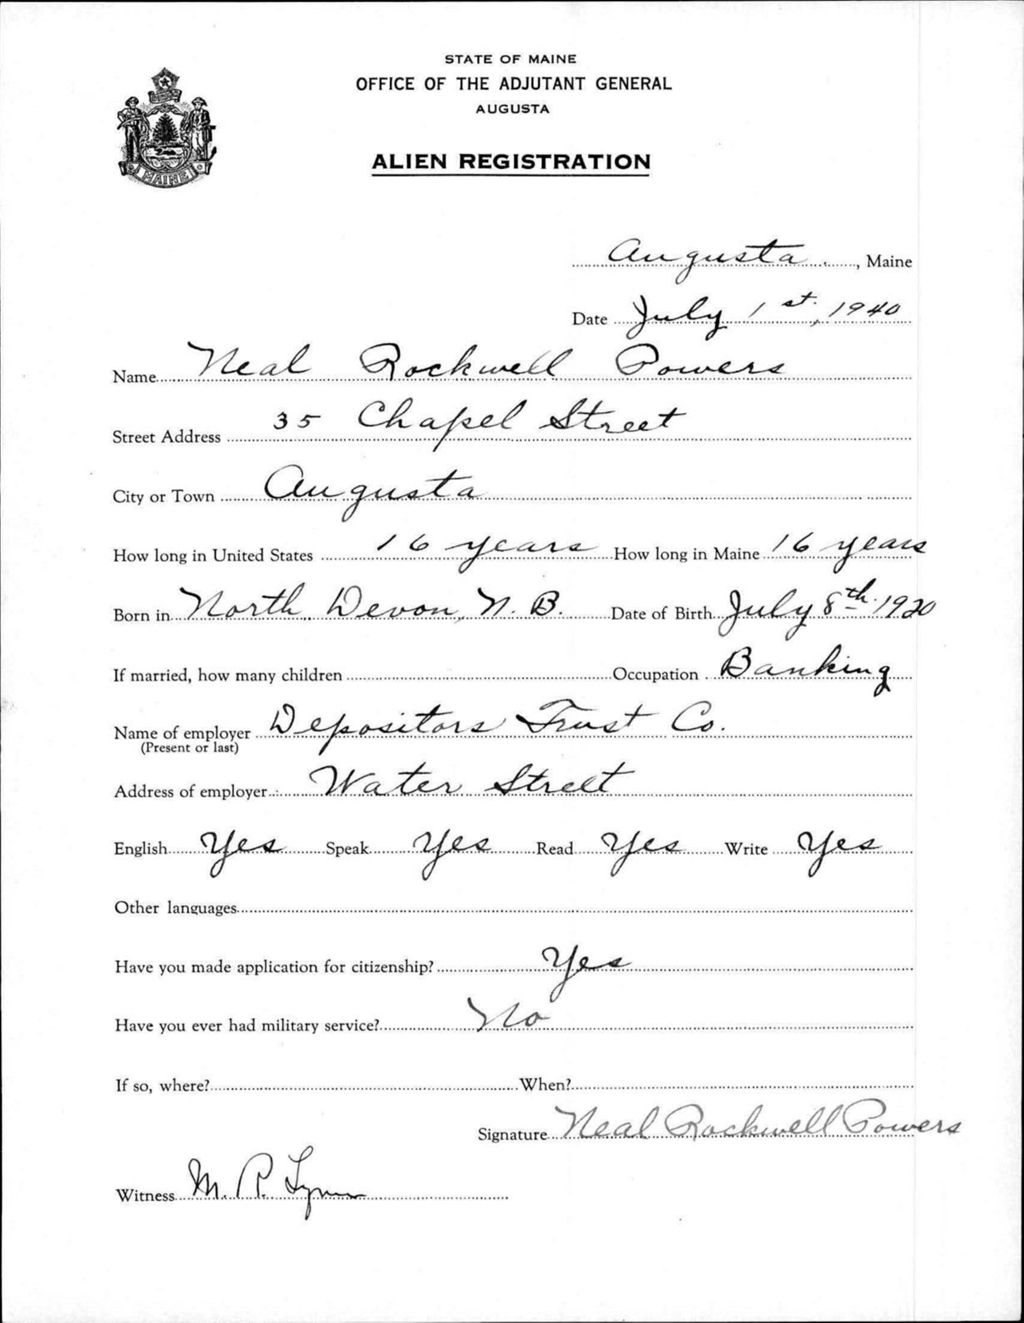 STATE OF MAINE
OFFICE OF THE ADJUTANT GENERAL
AUGUSTA
ALIEN REGISTRATION
MAINE
Augusta, Maine
Date July 1st, 1940
Name Neal Rockwell Powers
Street Address 35 Chapel Street
City or Town Augusta
How long in United States 16 years How long in Maine 16 years
Born in North Devon, N. B. Date of Birth July 8th 1920
If married, how many children Occupation Banking
Name of employer Depositors Trust Co.
(Present or last)
Address of employer Water Street
English Yes Speak Yes Read Yes Write Yes
Other languages
Have you made application for citizenship? Yes
Have you ever had military service? No
If so, where? When?
Signature Neal Rockwell Powers
Witness M. P. Lynn